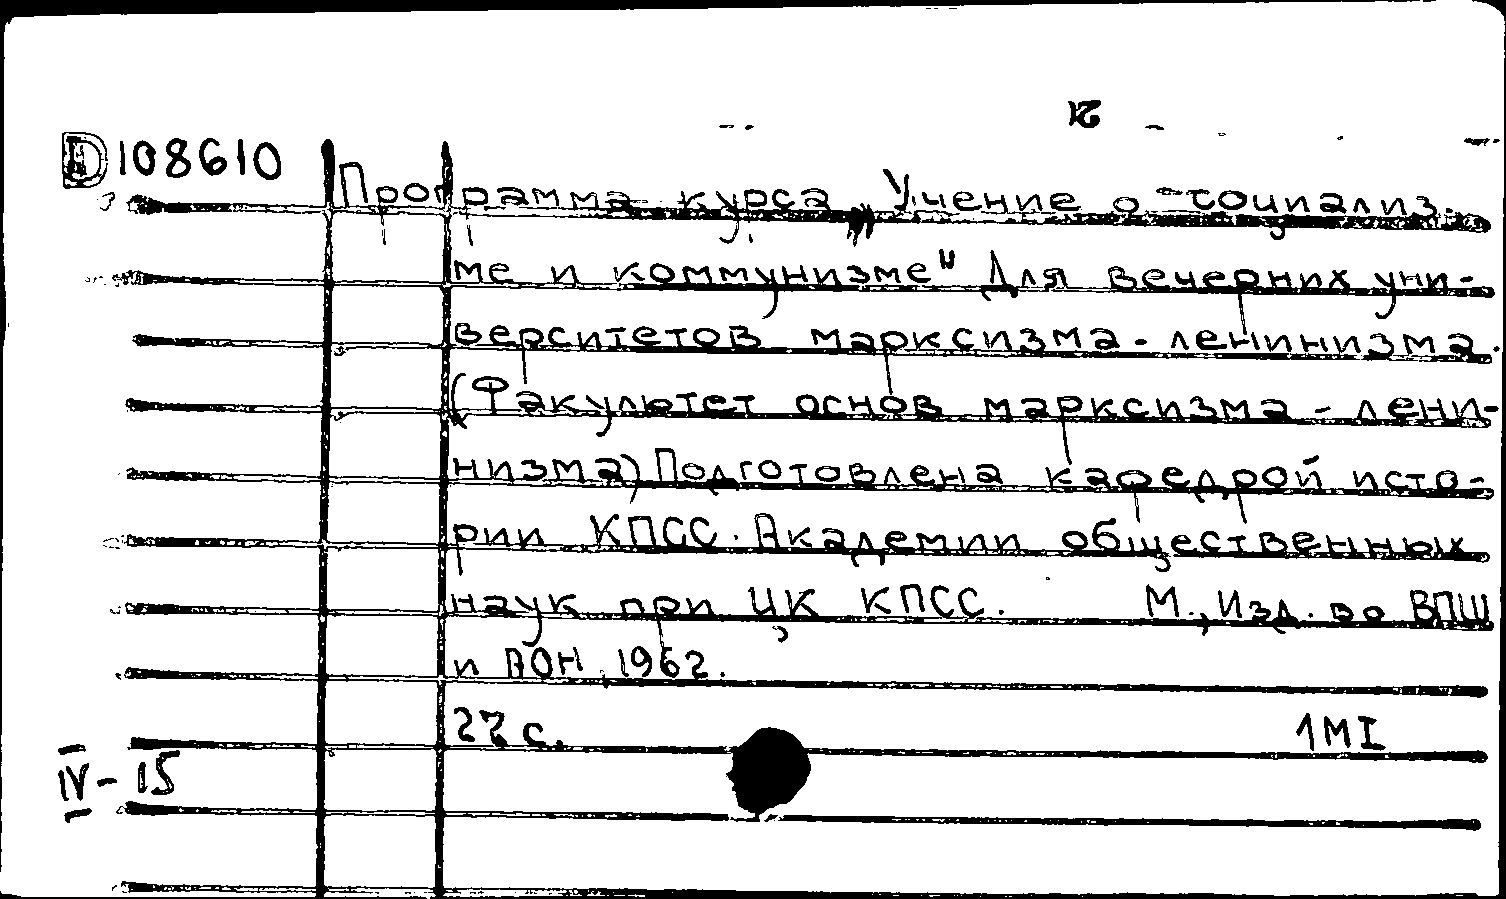 D108610
Программа курса „Учение о социализ-
ме и коммунизме" Для вечерних уни-
верситетов марксизма-ленинизма.
(Факультет основ марксизма-лени-
низма) Подготовлена кафедрой исто-
рии КПСС. Академии общественных
наук при ЦК КПСС. М., Изд. во ВПШ
и АОН, 1962.
27 с. 1MI
IV-15